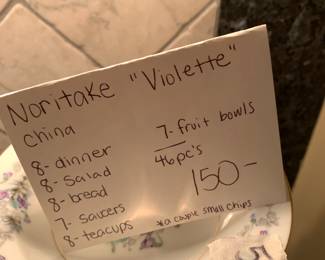 Noritake "Violette"
China
8- dinner
8- Salad
8- bread
7- saucers
8- teacups
7- fruit bowls
46 pc's
150-
*a couple small chips